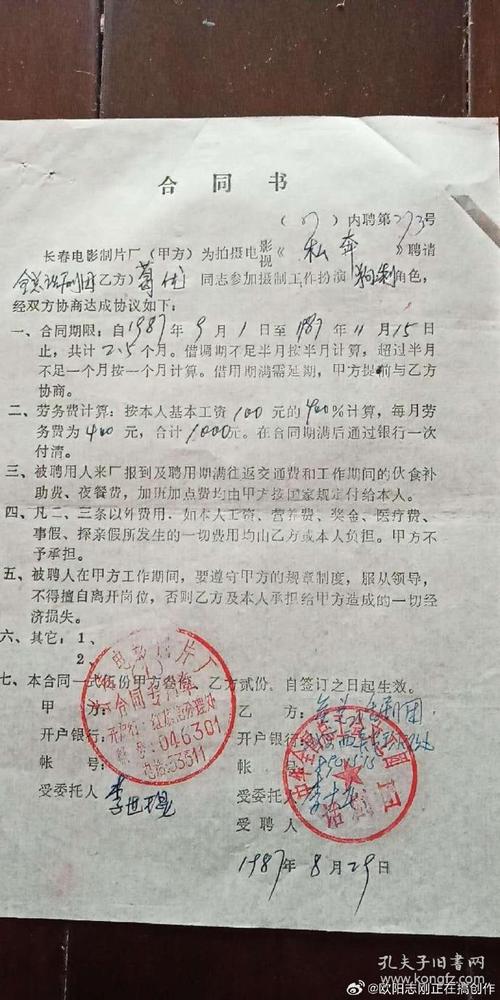 合同书
(87)内聘第273号
长春电影制片厂(甲方)为拍摄电影视《私奔》聘请
全总话剧团(乙方)葛优同志参加摄制工作扮演狗剩角色,
经双方协商达成协议如下:
一、合同期限:自1987年9月1日至1987年11月15日
止,共计2.5个月。借调期不足半月按半月计算,超过半月
不足一个月按一个月计算。借用期满需延期,甲方提前与乙方
协商。
二、劳务费计算:按本人基本工资100元的400%计算,每月劳
务费为400元,合计1000元。在合同期满后通过银行一次
付清。
三、被聘用人来厂报到及聘用期满往返交通费和工作期间的伙食补
助费、夜餐费,加班加点费均由甲方按国家规定付给本人。
四、凡二、三条以外费用.如本人工资、营养费、奖金、医疗费、
事假、探亲假所发生的一切费用均由乙方或本人负担。甲方不
予承担。
五、被聘人在甲方工作期间,要遵守甲方的规章制度,服从领导,
不得擅自离开岗位,否则乙方及本人承担给甲方造成的一切经
济损失。
六、其它:1、
2、
七、本合同一式伍份甲方叁份,乙方贰份,自签订之日起生效。
甲方:
乙方:全总话剧团
开户银行:
开户银行:
帐号:
帐号:
受委托人
受委托人
李世
受聘人
电影制片厂
合同专用章
046301
电话53311
话剧团
1987年8月29日
孔夫子旧书网
kongfz.com
@欧阳志刚正在搞创作